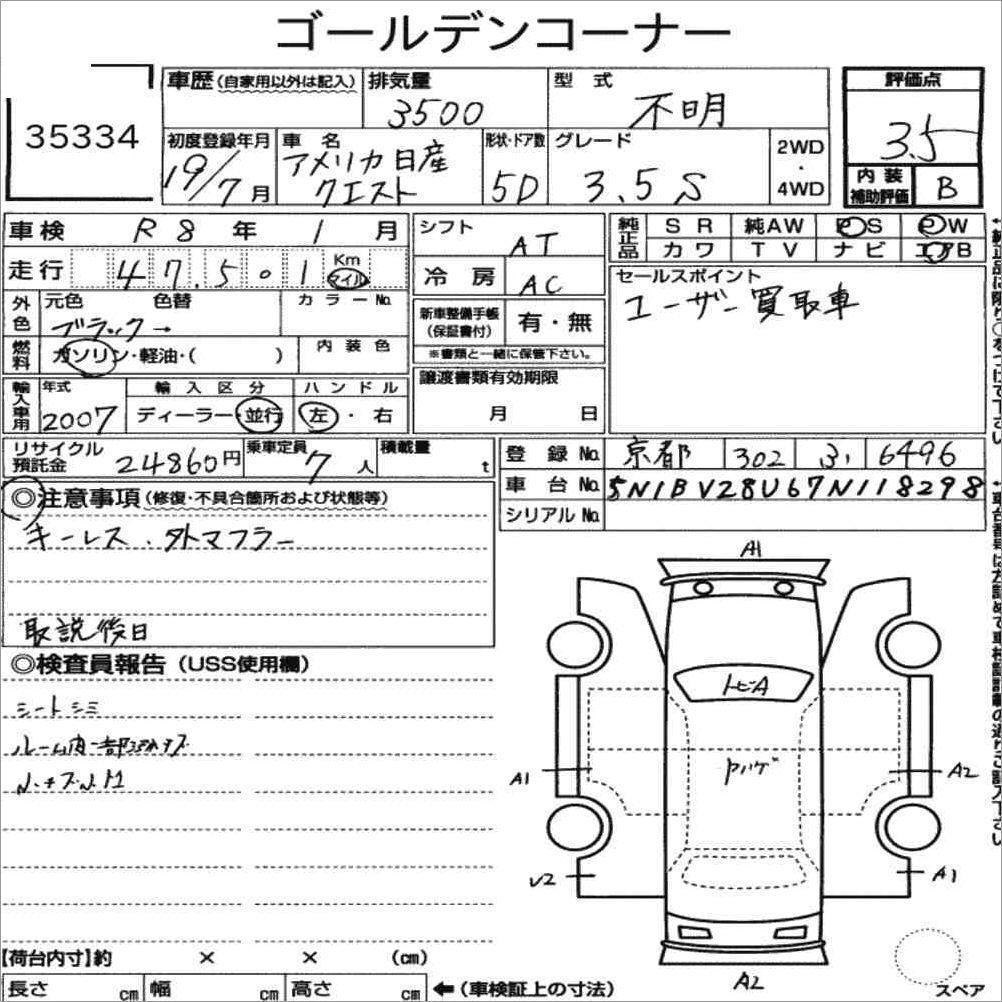 ゴールデンコーナー
35334
車歴(自家用以外は記入) 排気量 3500 型式 不明 評価点 3.5
初度登録年月 19/7月 車名 アメリカ日産 クエスト 形状・ドア数 5D グレード 3.5S 2WD・4WD 内装補助評価 B
車検 R8年 1月 シフト AT 純正品 SR 純AW PS PW
走行 47,501 Km マイル 冷房 AC カワ TV ナビ エアB
外色 元色 色替 カラーNo. ブラック→ 新車整備手帳(保証書付) 有・無 セールスポイント
ユーザー買取車
燃料 ガソリン・軽油・( ) 内装色 ※書類と一緒に保管下さい。
輸入車用 年式 2007 輸入区分 ディーラー・並行 ハンドル 左・右 譲渡書類有効期限 月 日
リサイクル預託金 24860円 乗車定員 7人 積載量 t 登録No. 京都 302 6496
車台No. 5N1BV28U67N118298
シリアルNo.
◎注意事項(修復・不具合箇所および状態等)
キーレス・外マフラー
取説後日
◎検査員報告(USS使用欄)
シートシミ
A1
トビA
A1 A2
V2 A1
A2
【荷台内寸】約 × × (cm)
長さ cm 幅 cm 高さ cm ←(車検証上の寸法)
スペア